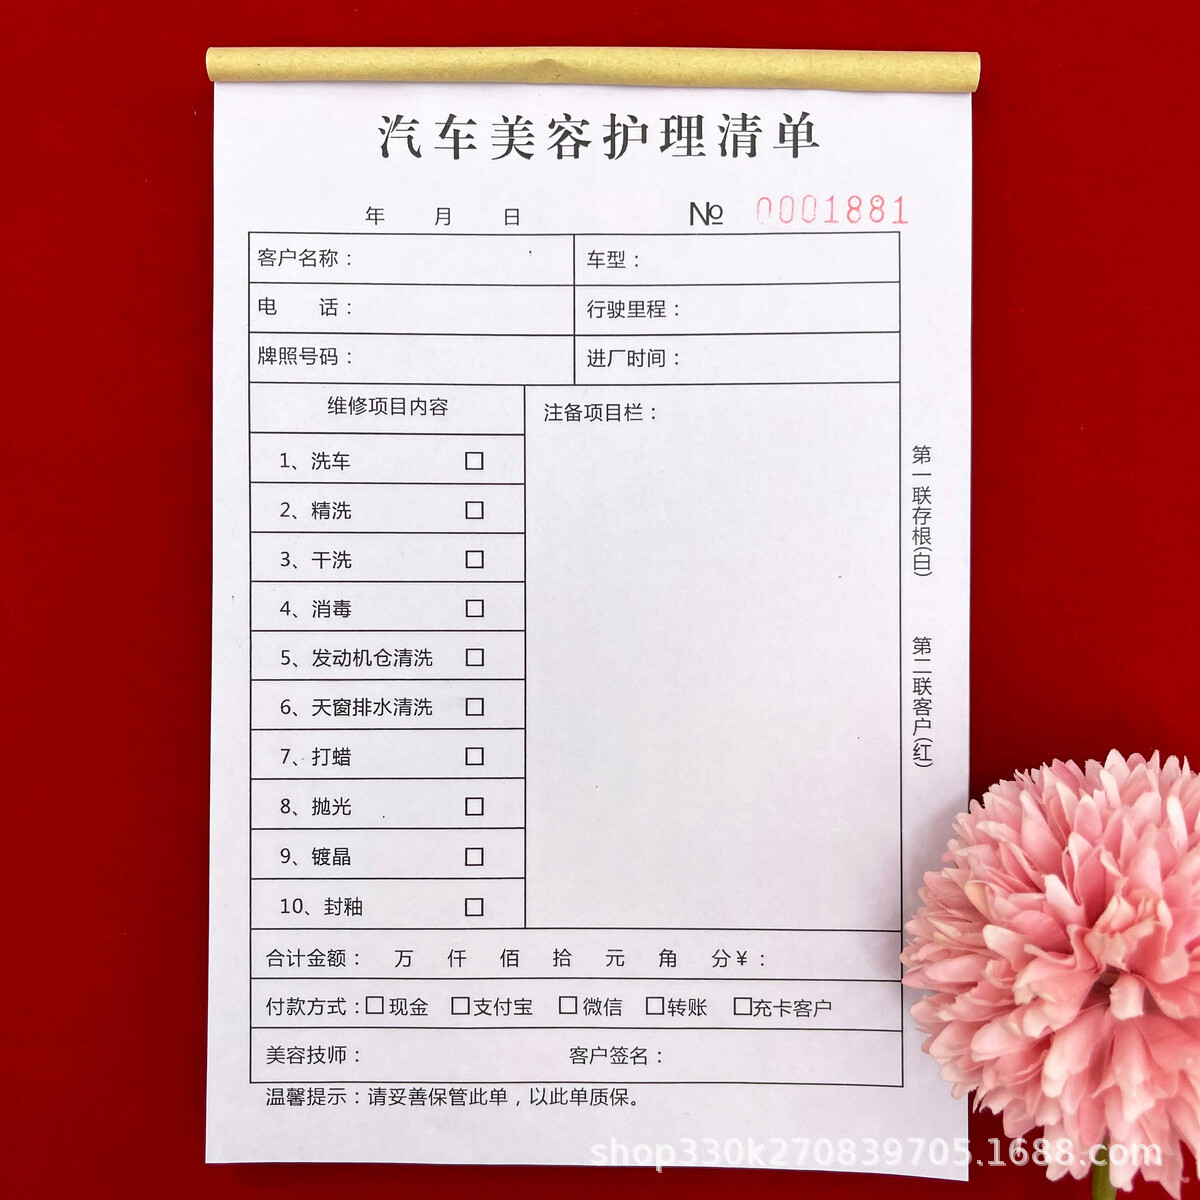 汽车美容护理清单
年 月 日 № 0001881
客户名称： 车型：
电 话： 行驶里程：
牌照号码： 进厂时间：
维修项目内容 注备项目栏：
1、洗车 □
2、精洗 □
3、干洗 □
4、消毒 □
5、发动机仓清洗 □
6、天窗排水清洗 □
7、打蜡 □
8、抛光 □
9、镀晶 □
10、封釉 □
合计金额： 万 仟 佰 拾 元 角 分￥：
付款方式：□现金 □支付宝 □微信 □转账 □充卡客户
美容技师： 客户签名：
温馨提示：请妥善保管此单，以此单质保。
第一联存根(白)
第二联客户(红)
shop330k270839705.1688.com